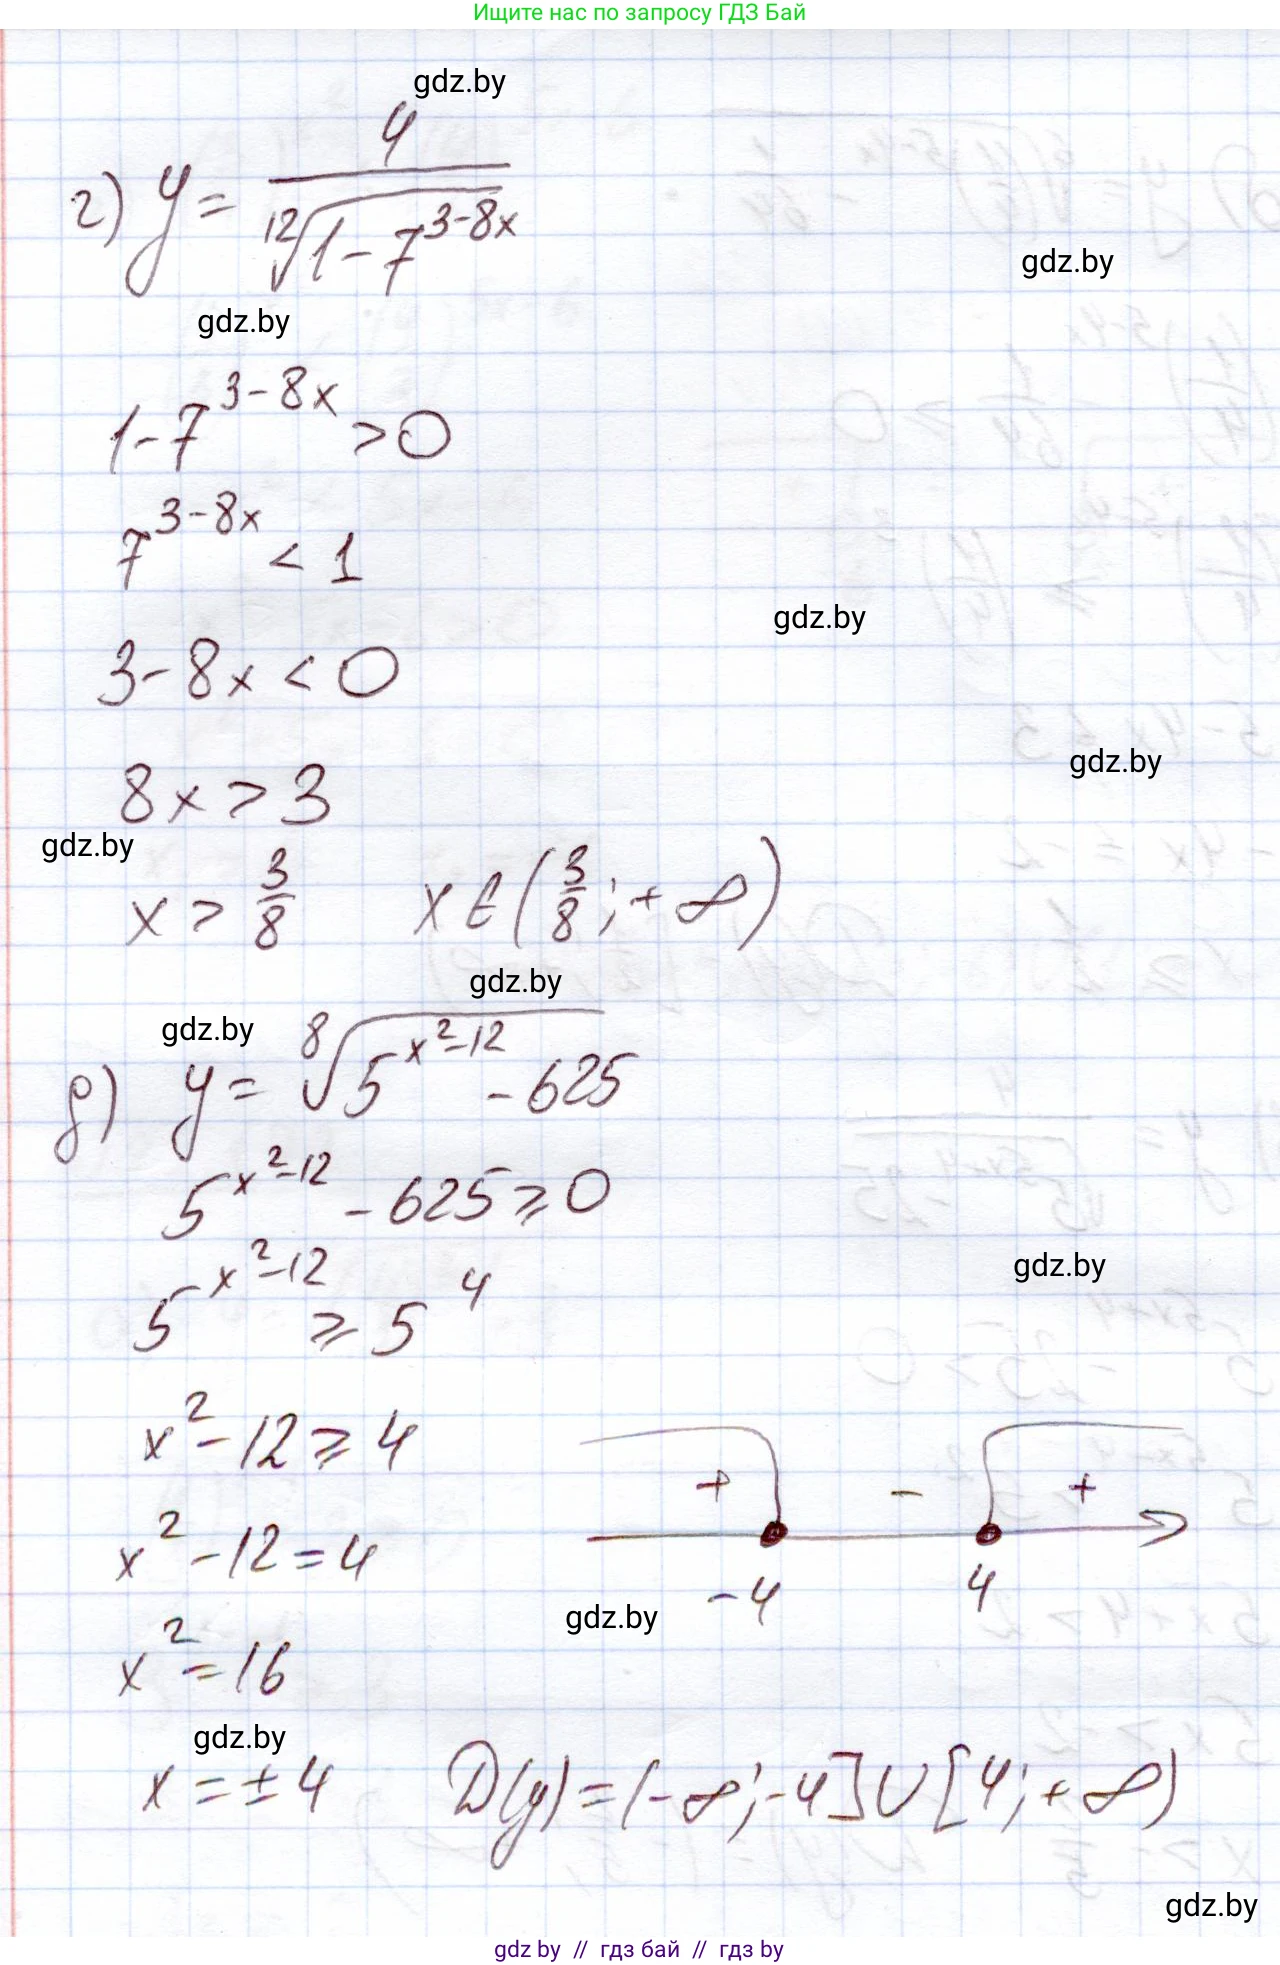 Ищите нас по запросу ГДЗ Бай
gdz.by
г) y = 4 / ¹²√(1 - 7^(3-8x))
gdz.by
gdz.by
1 - 7^(3-8x) > 0
7^(3-8x) < 1
gdz.by
3 - 8x < 0
gdz.by
8x > 3
gdz.by
x > 3/8 x ∈ (3/8; +∞)
gdz.by
gdz.by
д) y = ⁸√(5^(x²-12) - 625)
5^(x²-12) - 625 ≥ 0
gdz.by
5^(x²-12) ≥ 5^4
x² - 12 ≥ 4
+ - +
x² - 12 = 4
-4 4
gdz.by
x² = 16
gdz.by
x = ±4 D(y) = (-∞; -4] ∪ [4; +∞)
gdz.by
gdz by // гдз бай // гдз by